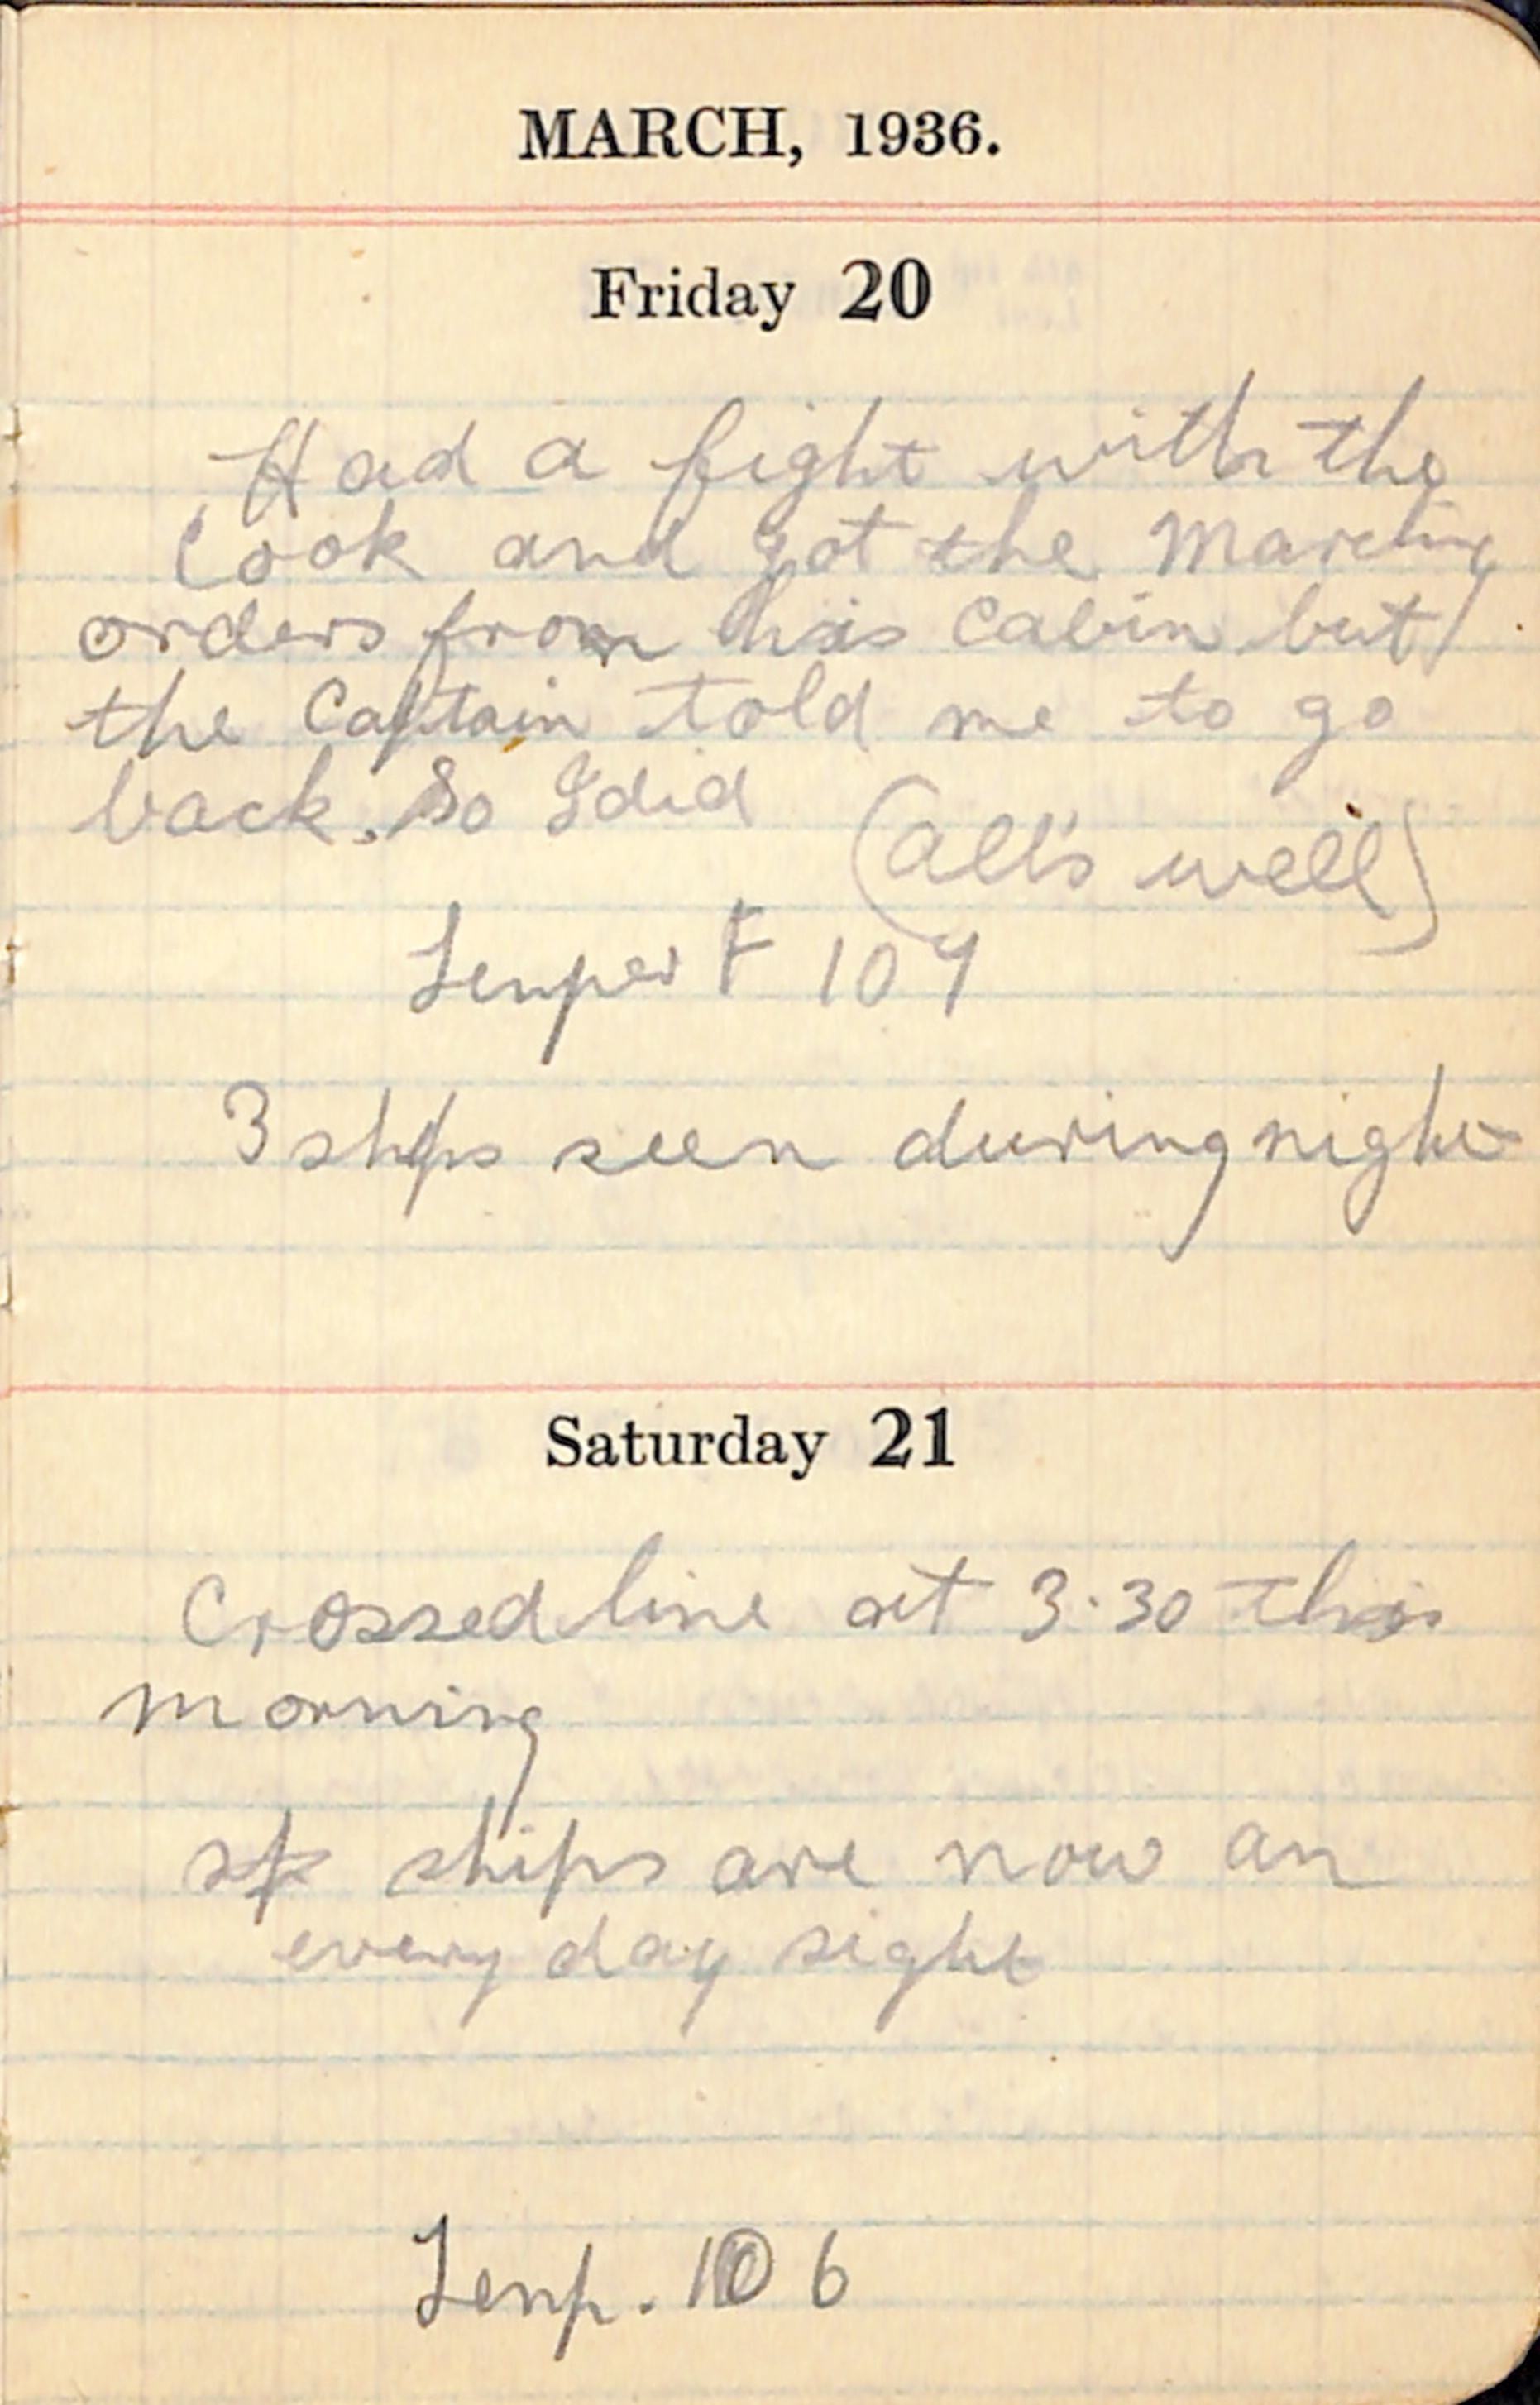 MARCH, 1936.
Friday 20
Had a fight with the
Cook and got the Marching
orders from his Cabin but
the Captain told me to go
back. So I did
(All's well)
Temper F 104
3 ships seen during night
Saturday 21
Crossed line at 3.30 this
morning
ships are now an
every day sight
Temp. 106